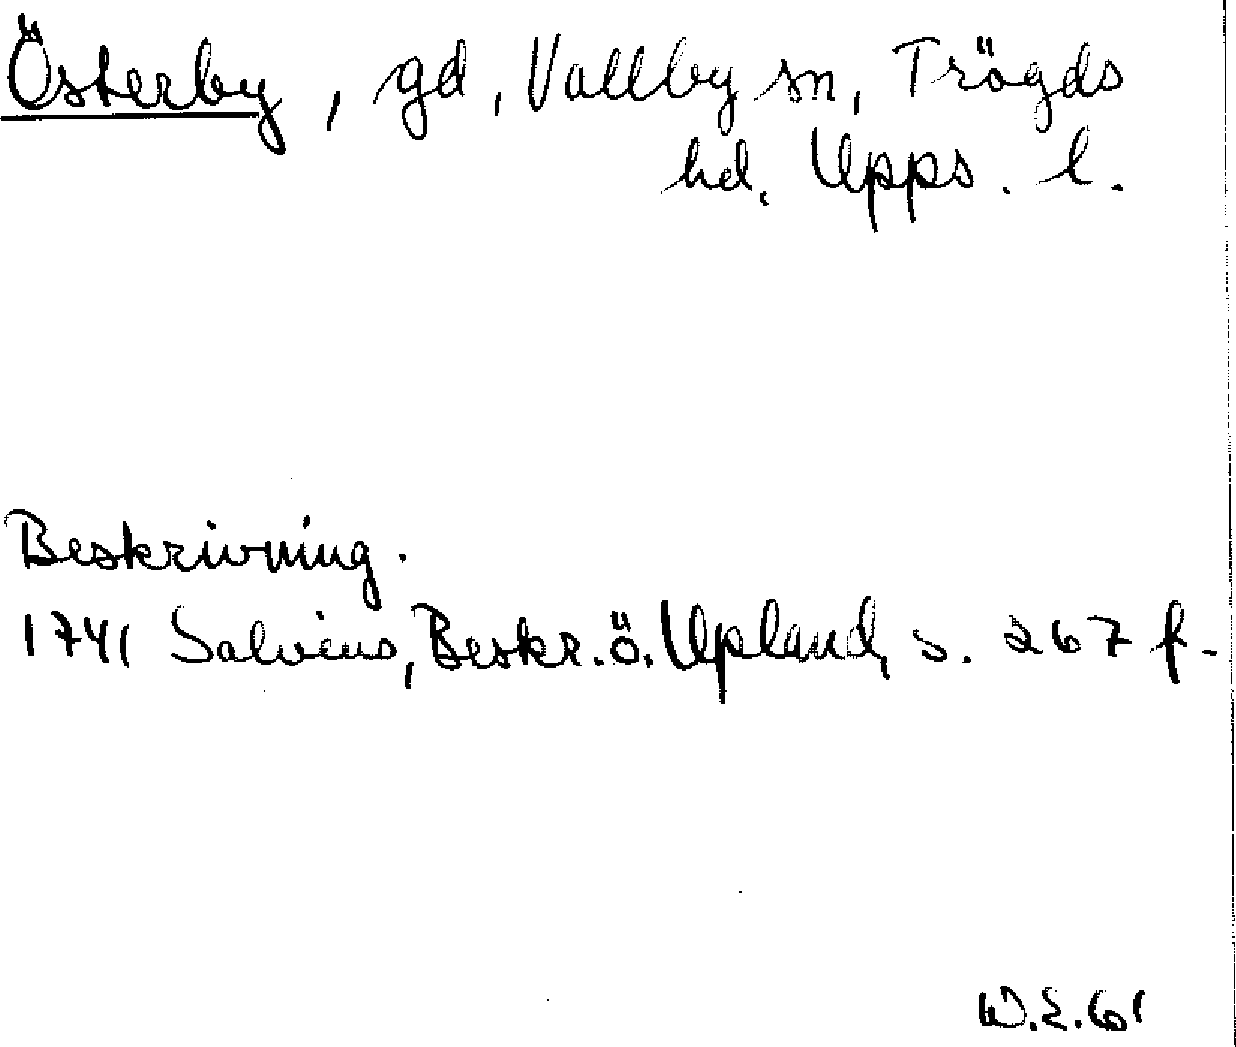 Österby, gd, Vallby sn, Trögds
hd, Upps. l.
Beskrivning.
1741 Salvius, Beskr. ö. Upland, s. 267 f.
W.E.61